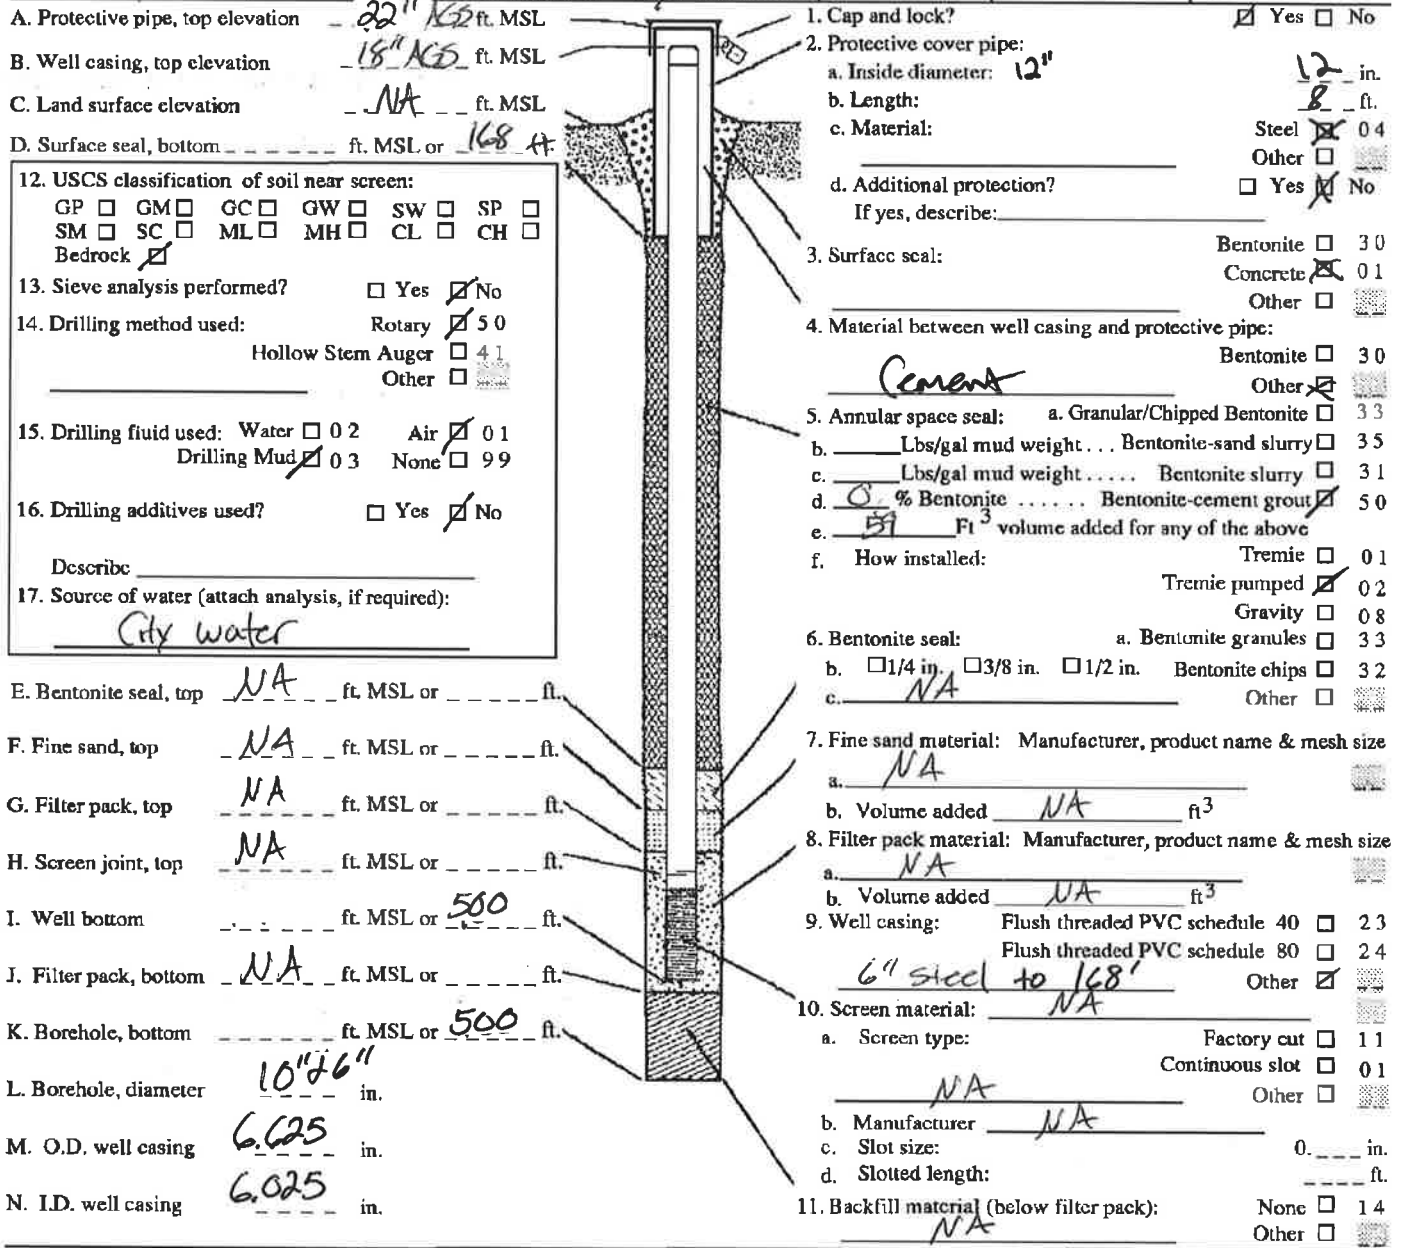 A. Protective pipe, top elevation 22" AGS ft. MSL
B. Well casing, top elevation 18" AGS ft. MSL
C. Land surface elevation NA ft. MSL
D. Surface seal, bottom ft. MSL or 168 ft.
12. USCS classification of soil near screen:
GP ☐ GM ☐ GC ☐ GW ☐ SW ☐ SP ☐
SM ☐ SC ☐ ML ☐ MH ☐ CL ☐ CH ☐
Bedrock ☑
13. Sieve analysis performed? ☐ Yes ☑ No
14. Drilling method used: Rotary ☑ 5 0
Hollow Stem Auger ☐ 4 1
Other ☐
15. Drilling fluid used: Water ☐ 0 2 Air ☑ 0 1
Drilling Mud ☑ 0 3 None ☐ 9 9
16. Drilling additives used? ☐ Yes ☑ No
Describe
17. Source of water (attach analysis, if required):
City water
E. Bentonite seal, top NA ft. MSL or ft.
F. Fine sand, top NA ft. MSL or ft.
G. Filter pack, top NA ft. MSL or ft.
H. Screen joint, top NA ft. MSL or ft.
I. Well bottom ft. MSL or 500 ft.
J. Filter pack, bottom NA ft. MSL or ft.
K. Borehole, bottom ft. MSL or 500 ft.
L. Borehole, diameter 10" & 6" in.
M. O.D. well casing 6.625 in.
N. I.D. well casing 6.025 in.
1. Cap and lock? ☑ Yes ☐ No
2. Protective cover pipe:
a. Inside diameter: 12" 12 in.
b. Length: 8 ft.
c. Material: Steel ☒ 0 4
Other ☐
d. Additional protection? ☐ Yes ☒ No
If yes, describe:
3. Surface seal: Bentonite ☐ 3 0
Concrete ☒ 0 1
Other ☐
4. Material between well casing and protective pipe:
Bentonite ☐ 3 0
Cement Other ☒
5. Annular space seal: a. Granular/Chipped Bentonite ☐ 3 3
b. Lbs/gal mud weight . . . Bentonite-sand slurry ☐ 3 5
c. Lbs/gal mud weight . . . . . Bentonite slurry ☐ 3 1
d. 0 % Bentonite . . . . . . Bentonite-cement grout ☑ 5 0
e. 59 Ft³ volume added for any of the above
f. How installed: Tremie ☐ 0 1
Tremie pumped ☑ 0 2
Gravity ☐ 0 8
6. Bentonite seal: a. Bentonite granules ☐ 3 3
b. ☐ 1/4 in. ☐ 3/8 in. ☐ 1/2 in. Bentonite chips ☐ 3 2
c. NA Other ☐
7. Fine sand material: Manufacturer, product name & mesh size
a. NA
b. Volume added NA ft³
8. Filter pack material: Manufacturer, product name & mesh size
a. NA
b. Volume added NA ft³
9. Well casing: Flush threaded PVC schedule 40 ☐ 2 3
Flush threaded PVC schedule 80 ☐ 2 4
6" steel to 168' Other ☑
10. Screen material: NA
a. Screen type: Factory cut ☐ 1 1
Continuous slot ☐ 0 1
NA Other ☐
b. Manufacturer NA
c. Slot size: 0. in.
d. Slotted length: ft.
11. Backfill material (below filter pack): None ☐ 1 4
NA Other ☐